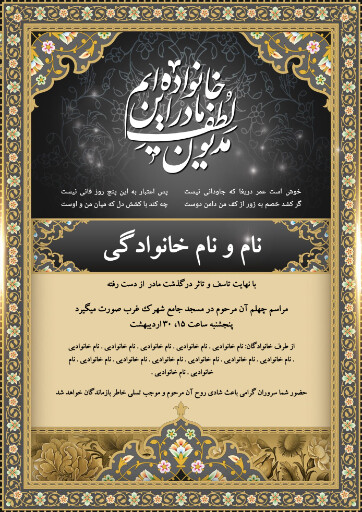 خانواده ایم
مادر این
مدیون لطف
خوش است عمر دریغا که جاودانی نیست
پس اعتبار به این پنج روز فانی نیست
گر کشد خصم به زور از کف من دامن دوست
چه کند با کشش دل که میان من و اوست
نام و نام خانوادگی
با نهایت تاسف و تاثر درگذشت مادر از دست رفته
مراسم چهلم آن مرحوم در مسجد جامع شهرک غرب صورت میگیرد
پنجشنبه ساعت ۱۵، ۳۰ اردیبهشت
از طرف خانوادگان: نام خانوادبی . نام خانوادبی . نام خانوادبی . نام خانوادبی . نام خانوادبی
. نام خانوادبی . نام خانوادبی . نام خانوادبی . نام خانوادبی . نام خانوادبی . نام
خانوادبی . نام خانوادبی .
حضور شما سروران گرامی باعث شادی روح آن مرحوم و موجب تسلی خاطر بازماندگان خواهد شد